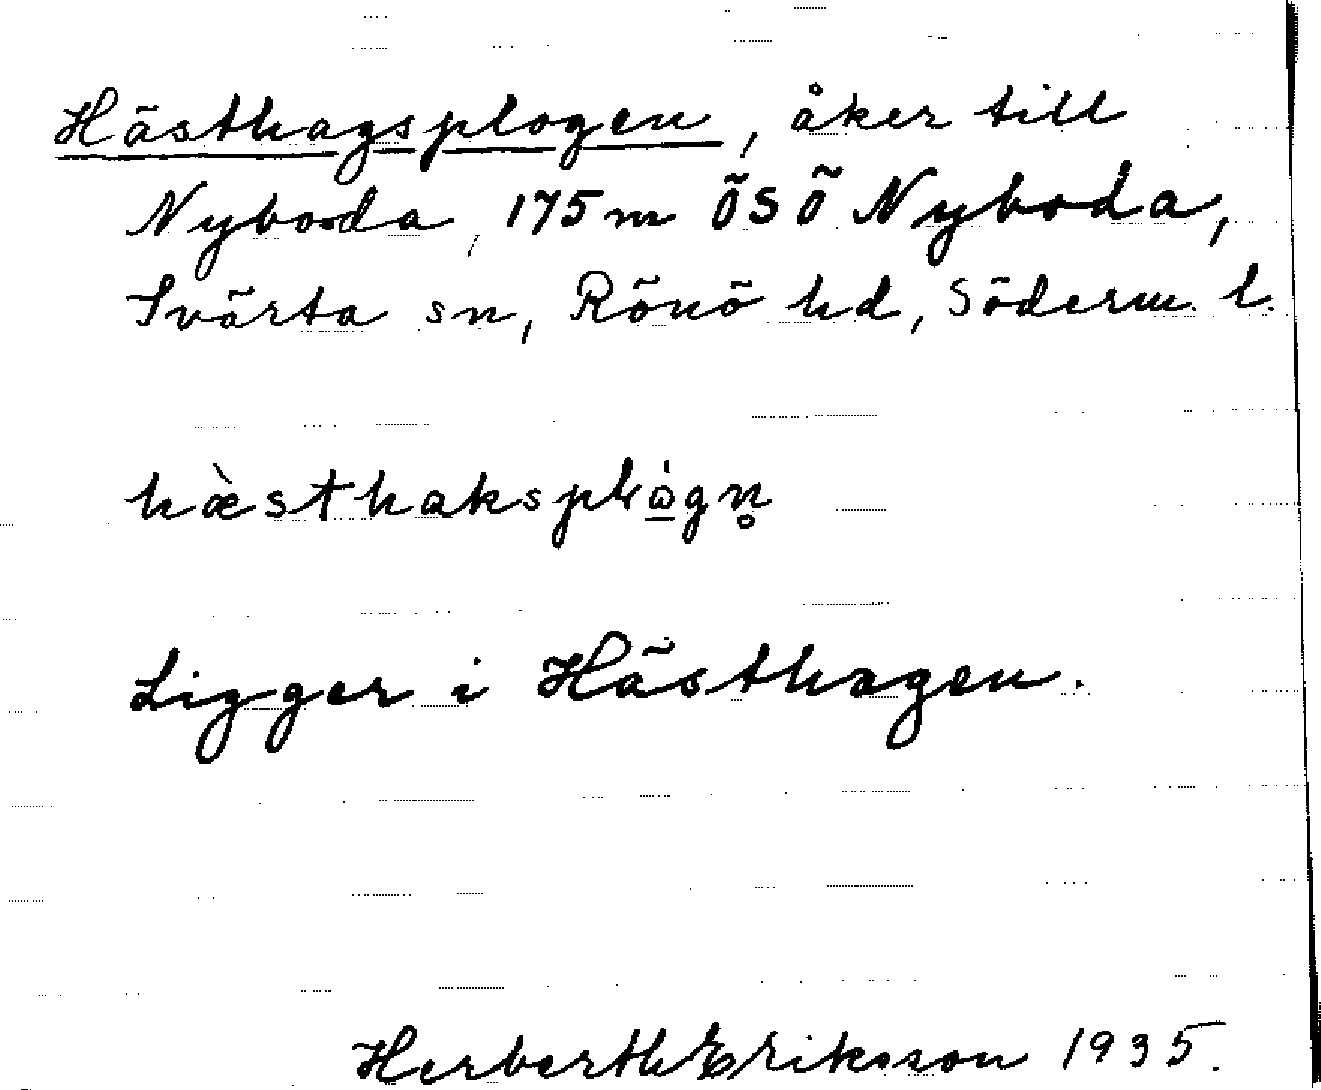 Hästhagsplogen, åker till
Nyboda, 175 m ÖSÖ Nyboda,
Svärta sn, Rönö hd, Söderm. l.
hæ̀sthakspḷώ̲gn̥
Ligger i Hästhagen.
Herberth Eriksson 1935.